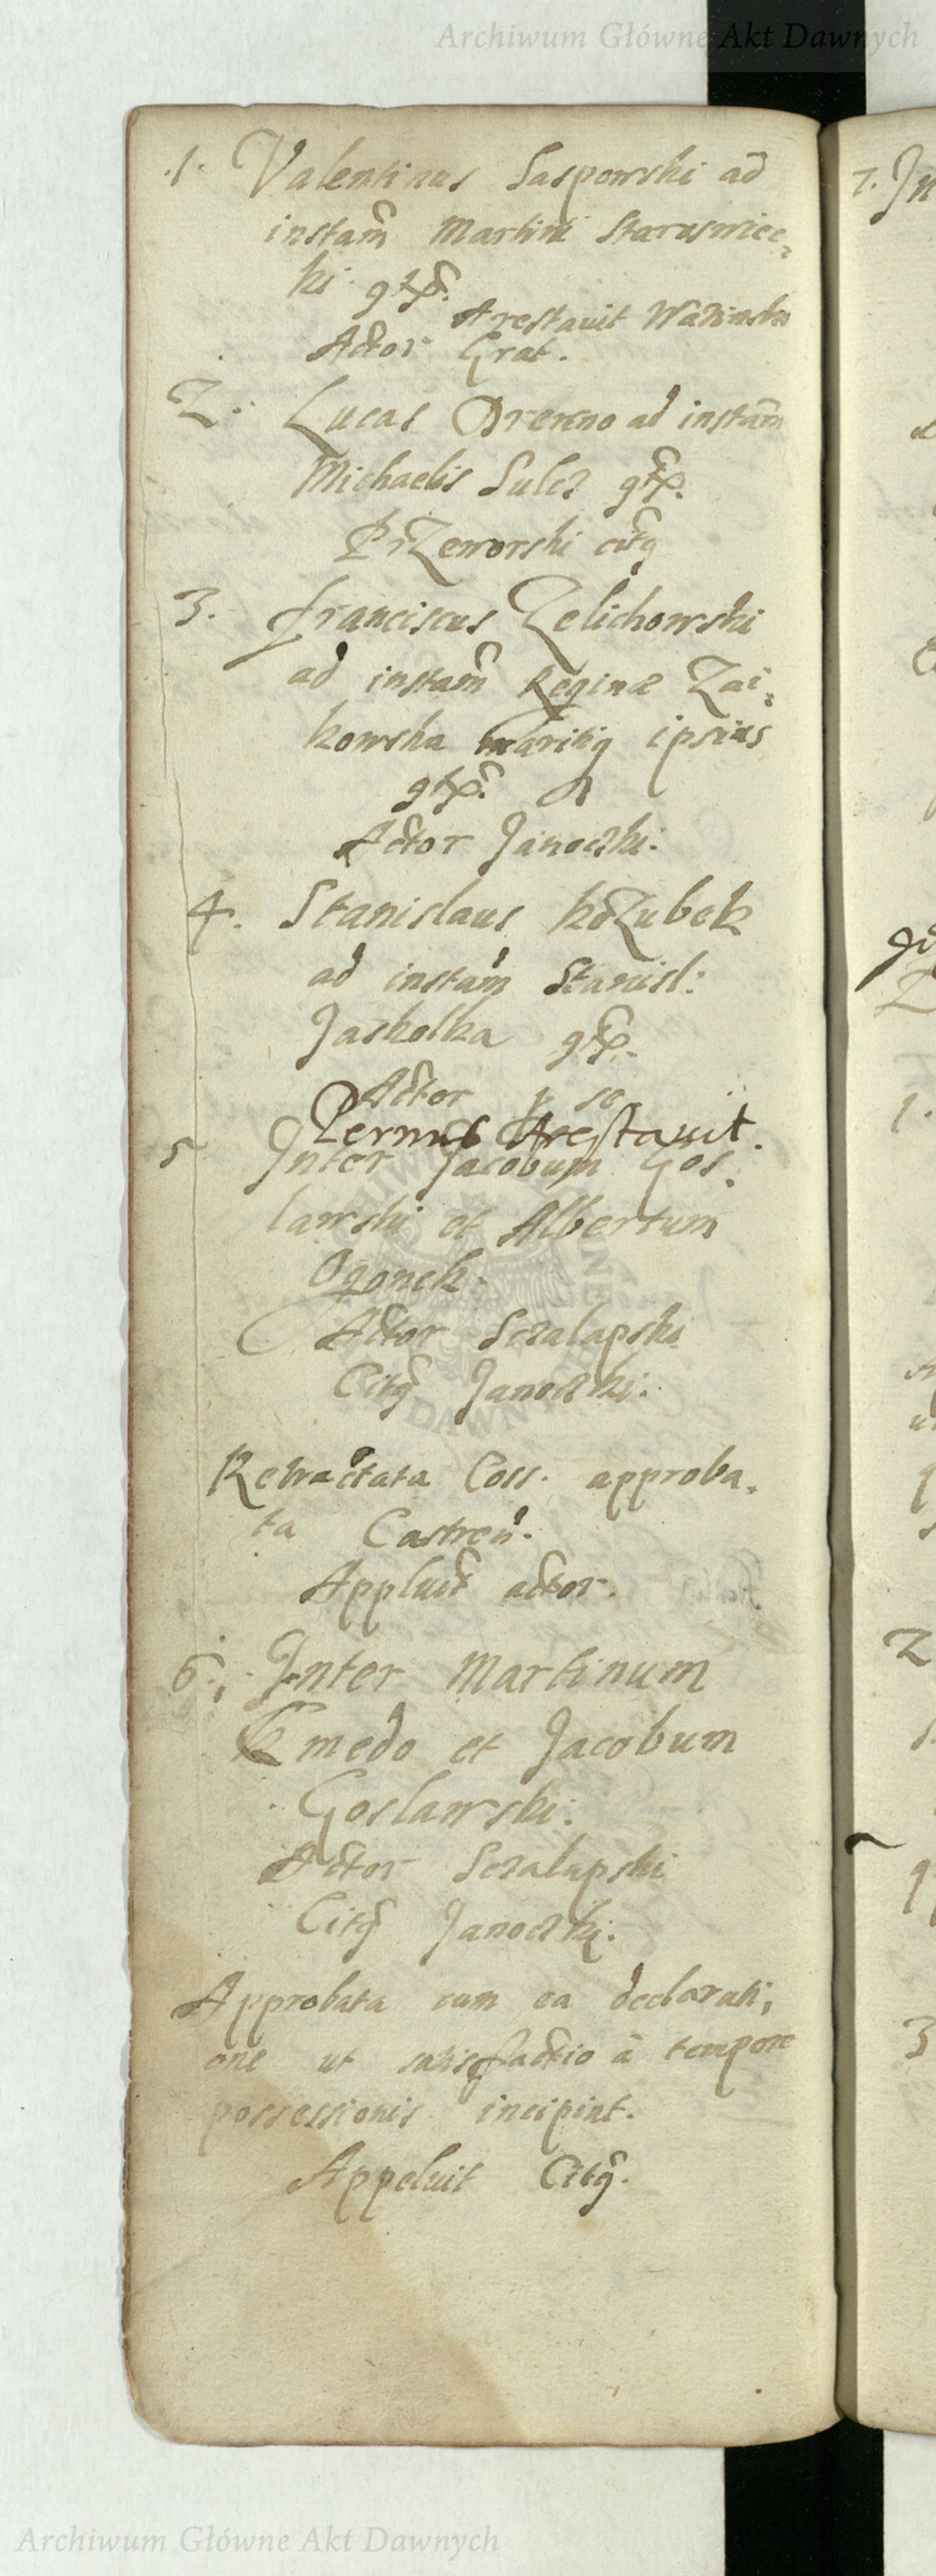 Archiwum Główne Akt Dawnych
.1. Valentinus Saspowski ad
instam̃ Martini Staruswiec,
ki
Arestavit Wadinski
Actor Grat.
2. Lucas Drewno ad instam̃
Michaelis Sulcz
PrZeworski citq̃
3. Franciscus Zelichowski
ad instam̃ Reginæ Zai,
kowska maritiq ipsius
Actor Janoczki.
4. Stanislaus koZubek
ad instam̃ Stanisl:
Jaskolka
Actor p se
Pernus Arestavit.
5 Inter Jacobum Gos,
lawski et Albertum
Ogonek.
Actor Sczalapski
Citq̃ Janoczki.
Retractata Coss. approba,
ta Castreñ.
Appluit actor.
6. Inter Martinum
Kmedo et Jacobum
Goslawski.
Actor Sczalapski
Citq̃ Janoczki.
Approbata cum ea declarati,
one ut satisfactio à tempore
possessionis incipint.
Appeluit Citq̃.
7. In
1.
2
3
Archiwum Główne Akt Dawnych